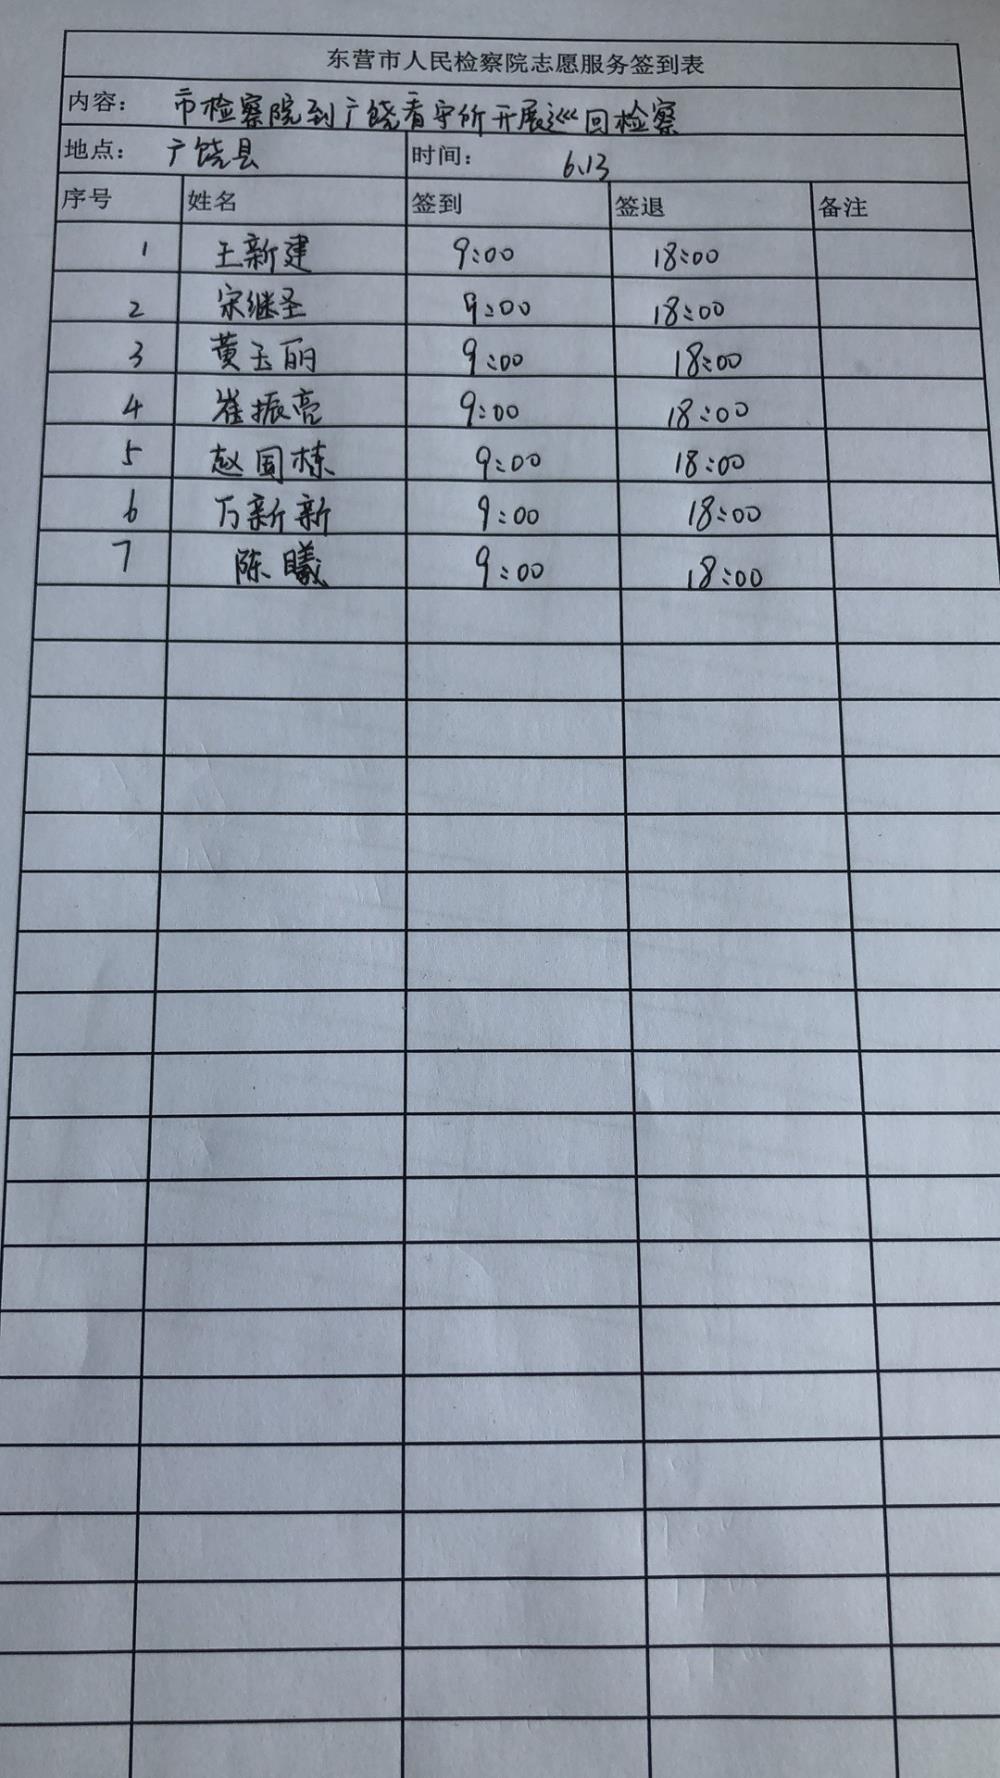 东营市人民检察院志愿服务签到表
内容： 市检察院到广饶看守所开展巡回检察
地点： 广饶县 时间： 6.13
序号 姓名 签到 签退 备注
1 王新建 9:00 18:00
2 宋继圣 9:00 18:00
3 黄玉丽 9:00 18:00
4 崔振亮 9:00 18:00
5 赵国栋 9:00 18:00
6 万新新 9:00 18:00
7 陈曦 9:00 18:00